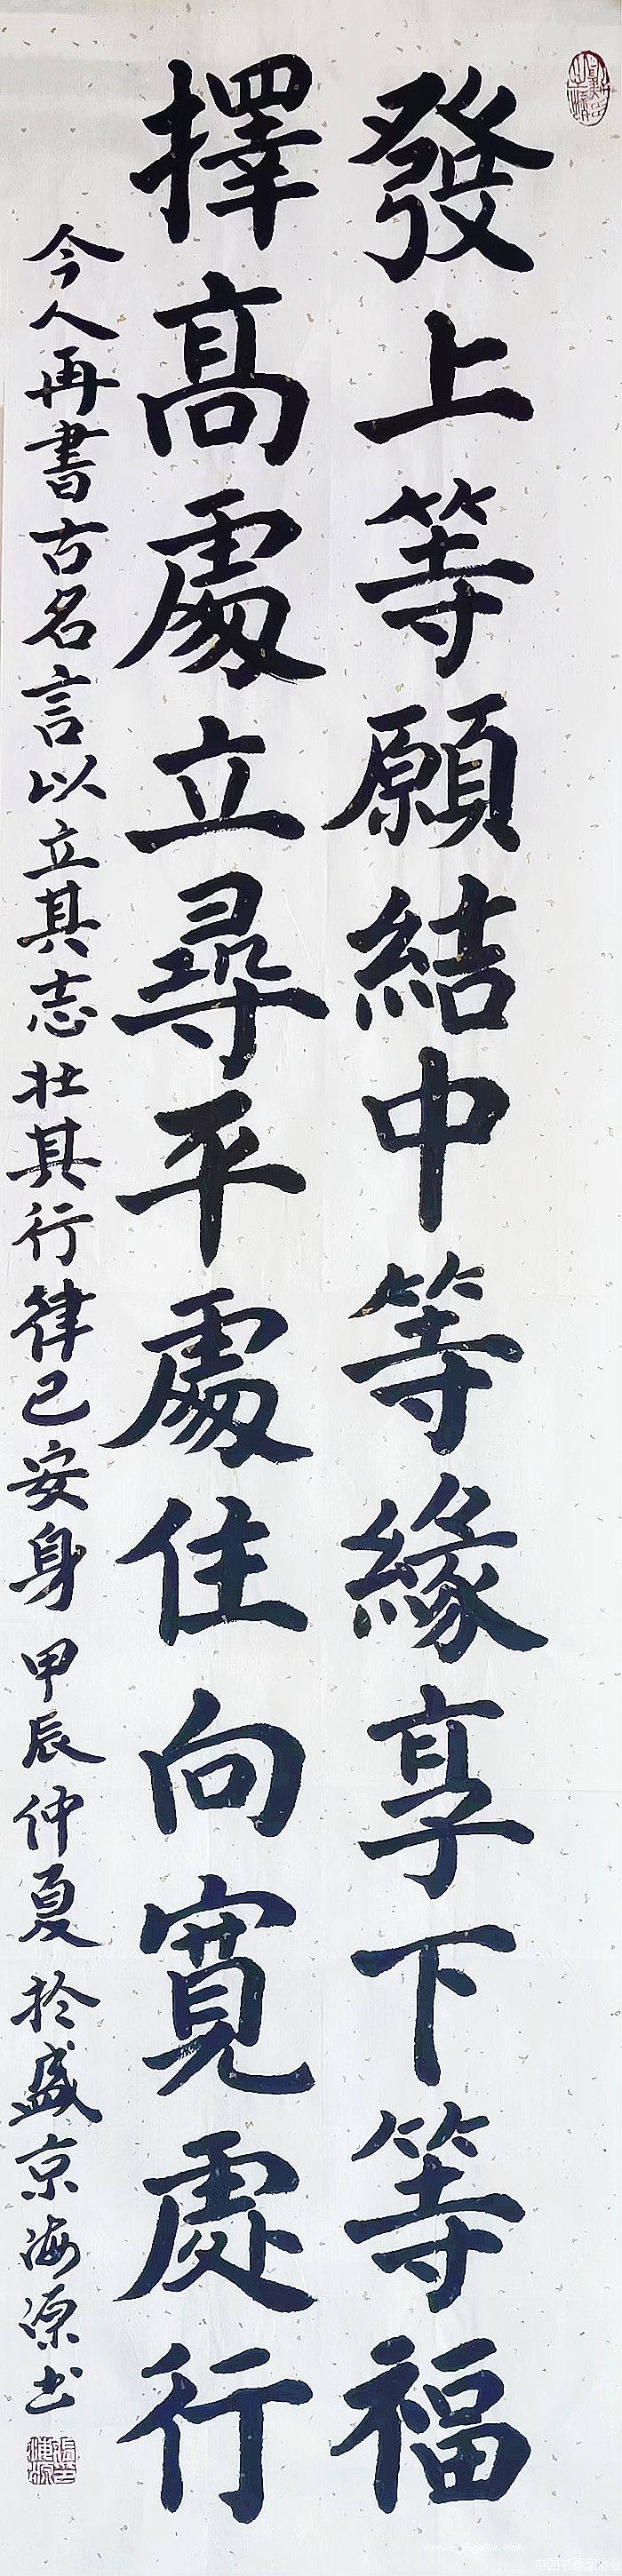 發上等願結中等緣享下等福
擇高處立尋平處住向寬處行
今人再書古名言以立其志壯其行律己安身 甲辰仲夏於盛京海源书
中国书画家协会